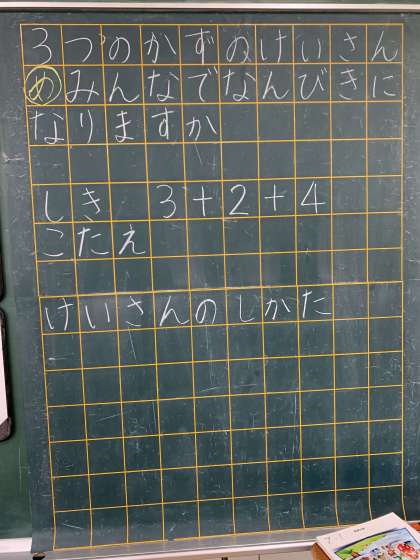 3つのかずのけいさん
めみんなでなんびきに
なりますか
しき 3+2+4
こたえ
けいさんのしかた